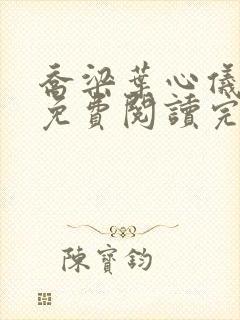 喬梁葉心儀
免費閱讀完
陳寶鈞